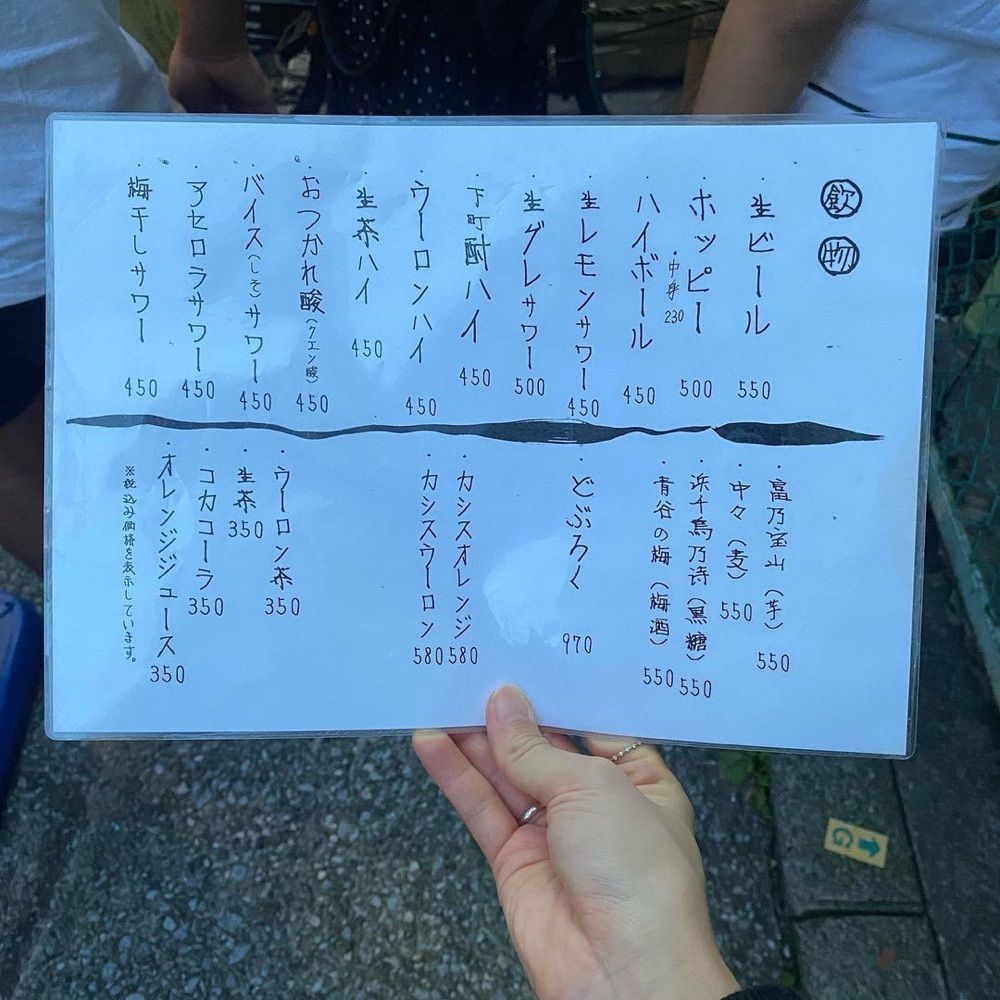 飲物
・生ビール 550
・ホッピー 500
・中身 230
・ハイボール 450
・生レモンサワー 450
・生グレサワー 500
・下町酎ハイ 450
・ウーロンハイ 450
・生茶ハイ 450
・おつかれ酸(クエン酸) 450
・バイス(しそ)サワー 450
・アセロラサワー 450
・梅干しサワー 450
・富乃宝山(芋) 550
・中々(麦) 550
・浜千鳥乃詩(黒糖) 550
・青谷の梅(梅酒) 550
・どぶろく 970
・カシスオレンジ 580
・カシスウーロン 580
・ウーロン茶 350
・生茶 350
・コカコーラ 350
・オレンジジュース 350
※税込み価格を表示しています。
G